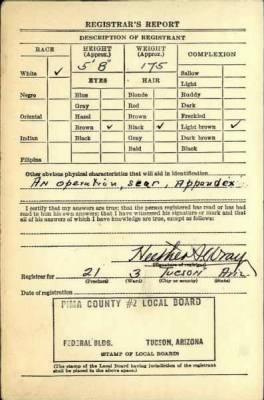 REGISTRAR'S REPORT
DESCRIPTION OF REGISTRANT
RACE HEIGHT (Approx.) WEIGHT (Approx.) COMPLEXION
5' 8" 175
White ✓ EYES HAIR Sallow
Light
Negro Blue Blonde Ruddy
Gray Red Dark
Oriental Hazel Brown Freckled
Brown ✓ Black ✓ Light brown ✓
Indian Black Gray Dark brown
Bald Black
Filipino
Other obvious physical characteristics that will aid in identification
An operation, scar, Appendex
I certify that my answers are true; that the person registered has read or has had read to him his own answers; that I have witnessed his signature or mark and that all of his answers of which I have knowledge are true, except as follows:
Wray
(Signature of registrar)
Registrar for 21 3 Tucson Ariz
(Precinct) (Ward) (City or county) (State)
Date of registration
PIMA COUNTY #2 LOCAL BOARD
FEDERAL BLDG. TUCSON, ARIZONA
(STAMP OF LOCAL BOARD)
(The stamp of the Local Board having jurisdiction of the registrant
shall be placed in the above space.)